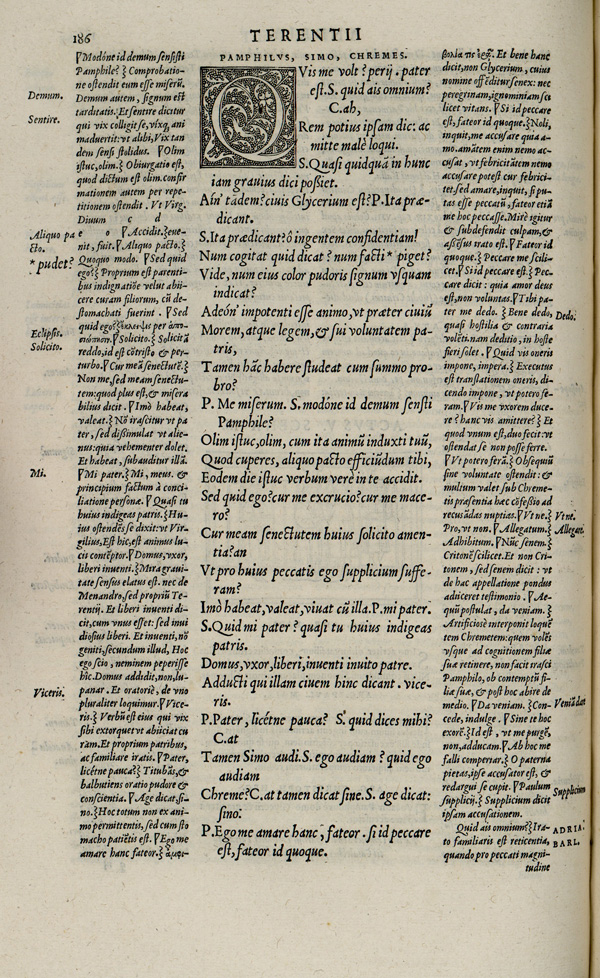 186
TERENTII
PAMPHILVS, SIMO, CHREMES.
QVis me volt? perij. pater
est. S. quid ais omnium?
C. ah,
Rem potius ipsam dic: ac
mitte malè loqui.
S. Quasi quidquã in hunc
iam grauius dici possiet.
Ain' tãdem? ciuis Glycerium est? P. Ita præ-
dicant.
S. Ita prædicant? ô ingentem confidentiam!
Num cogitat quid dicat? num facti * piget?
Vide, num eius color pudoris signum vsquam
indicat?
Adeón' impotenti esse animo, vt præter ciuiũ
Morem, atque legem, & sui voluntatem pa-
tris,
Tamen hãc habere studeat cum summo pro-
bro?
P. Me miserum. S. modóne id demum sensti
Pamphile?
Olim istuc, olim, cum ita animũ induxti tuũ,
Quod cuperes, aliquo pacto efficiũdum tibi,
Eodem die istuc verbum verè in te accidit.
Sed quid ego? cur me excrucio? cur me mace-
ro?
Cur meam senectutem huius solicito amen-
tia? an
Vt pro huius peccatis ego supplicium suffe-
ram?
Imò habeat, valeat, viuat cũ illa. P. mi pater.
S. Quid mi pater? quasi tu huius indigeas
patris.
Domus, vxor, liberi, inuenti inuito patre.
Adducti qui illam ciuem hinc dicant. vice-
ris.
P. Pater, licétne pauca? S. quid dices mihi?
C. at
Tamen Simo audi. S. ego audiam? quid ego
audiam
Chreme? C. at tamen dicat sine. S. age dicat:
sino.
P. Ego me amare hanc, fateor. si id peccare
est, fateor id quoque.
Demum.
Sentire.
Aliquo pa
cto.
* pudet?
Eclipsis.
Solicito.
Mi.
Viceris.
Modóne id demum sensisti
Pamphile? Comprobatio-
ne ostendit eum esse miserũ.
Demum autem, signum est
tarditatis. Et sentire dicitur
qui vix colligit se, vixq, ani
maduertit: vt alibi, Vix tan
dem sensi stolidus. Olim
istuc, olim. Obiurgatio est,
quod dictum est olim. confir
mationem autem per repe-
titionem ostendit. Vt Virg.
Diuum c d
e o Accidit. Euene-
nit, fuit. Aliquo pacto.
Quoquo modo. Sed quid
ego? Proprium est parenti-
bus indignatiõe velut abii-
cere curam filiorum, cũ de-
stomachati fuerint. Sed
quid ego?
Solicito. Solicitã
reddo, id est cõtristo, & per-
turbo. Cur meã senectutẽ.
Non me, sed meam senectu-
tem: quod plus est, & misera
bilius dicit. Imò habeat,
valeat. Nõ irascitur vt pa-
ter, sed dißimulat vt alie-
nus: quia vehementer dolet.
Et habeat, subauditur illã.
Mi pater. Mi, meus. &
principium factum à conci-
liatione persona. Quasi tu
huius indigeas patris. Hu-
ius ostendẽs se dixit: vt Vir-
gilius, Est hic, est animus lu-
cis contẽptor. Domus, vxor,
liberi inuenti. Mira graui-
tate sensus elatus est. nec de
Menandro, sed propriũ Te-
rentij. Et liberi inuenti di-
cit, cum vnus esset: sed inui
diosius liberi. Et inuenti, nõ
geniti, secundum illud, Hoc
ego scio, neminem peperisse
hîc. Domus addidit, non, lu-
panar. Et oratoriè, de vno
pluraliter loquimur. Vice-
ris. Verbũ est eius qui vix
sibi extorquet vt abiiciat cu
ram. Et proprium patribus,
ac familiare iratis. Pater,
licétne pauca? Titubãs, &
balbutiens oratio pudore &
conscientia. Age dicat, si-
no. Hoc totum non ex ani-
mo permittentis, sed cum sto
macho patiẽtis est. Ego me
amare hanc fateor.
Et bene hanc
dicit, non Glycerium, cuius
nomine offẽditur senex: nec
peregrinam, ignominiam sci
licet vitans. Si id peccare
est, fateor id quoque. Noli,
inquit, me accusare quia a-
mo. amãtem enim nemo ac-
cusat, vt febricitãtem nemo
accusare potest cur febrici-
tet. sed amare, inquit, si pu-
tas esse peccatũ, fateor etiã
me hoc peccasse. Mirè igitur
& subdefendit culpam, &
assẽsus irato est. Fateor id
quoque. Peccare me scili-
cet. Si id peccare est. Pec-
care dicit: quia amor deus
est, non voluntas. Tibi pa-
ter me dedo. Bene dedo,
quasi hostilia & contraria
volẽti. nam deditio, in hoste
fieri solet. Quid vis oneris
impone, impera. Executus
est translationem oneris, di-
cendo impone, vt potero fe-
ram. Vis me vxorem duce-
re? hanc vis amittere? Et
quod vnum est, duo fecit: vt
ostendat se non posse ferre.
Vt potero ferã. Obsequiũ
sine voluntate ostendit: &
multum valet sub Chreme-
tis præsentia hæc cõfessio ad
recusãdas nuptias. Vt ne.
Pro, vt non. Allegatum.
Adhibitum. Nũc senem.
Critonẽ scilicet. Et non Cri-
tonem, sed senem dicit: vt
de hac appellatione pondus
adiiceret testimonio. Ae-
quũ postulat, da veniam.
Artificiosè interponit loquẽ
tem Chremetem: quem volẽs
vsque ad cognitionem filiæ
suæ retinere, non facit irasci
Pamphilo, ob contemptũ fi-
liæ suæ, & post hoc abire de
medio. Da veniam. Con-
cede, indulge. Sine te hoc
exorẽ. Id est, vt me purgẽ,
non, adducam. Ab hoc me
falli comperiar. O paterna
pietas, ipse accusator est, &
redargui se cupit. Paulum
supplicij. Supplicium dicit
ipsam accusationem.
Quid ais omnium? Ira-
to familiaris est reticentia,
quando pro peccati magni-
tudine
Dedo.
Vt ne.
Allegare.
Veniã dat
Supplicium
ADRIA.
BARL.